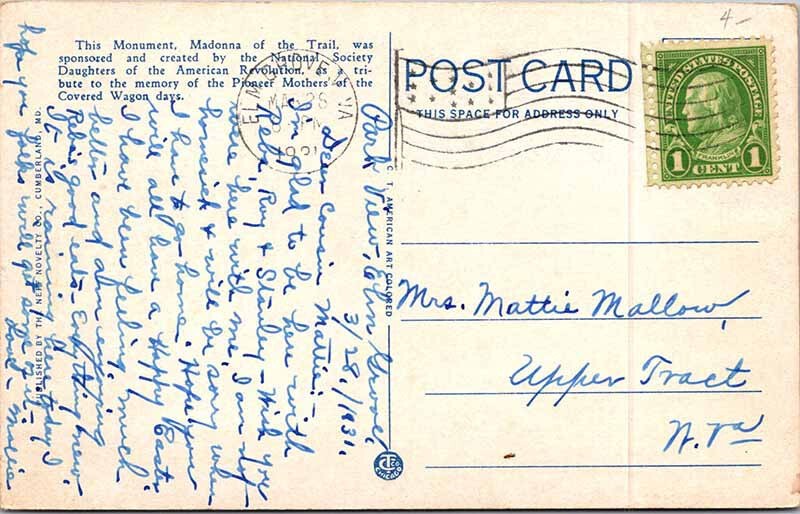 4-
This Monument, Madonna of the Trail, was
sponsored and created by the National Society
Daughters of the American Revolution, as a tri-
bute to the memory of the Pioneer Mothers of the
Covered Wagon days.
ELM GROVE W.VA
MAR 28
1931
POST CARD
THIS SPACE FOR ADDRESS ONLY
UNITED STATES POSTAGE
FRANKLIN
1 CENT 1
Park View, Elm Grove,
3/28/1931.
Dear Cousin Mattie:-
I'm glad to be here with
Reba, Ray & Stanley - Wish you
were here with me. I am not
homesick & will be sorry when
I have to go home. Hope you
will all have a Happy Easter.
I have been feeling much
better and above enjoying
Reba's good eats - Everything new
It is raining here today. I
hope you folks will get some of it -
Love - Mollie
Mrs. Mattie Mallow,
Upper Tract
W. Va
PUBLISHED BY THE NEFF NOVELTY CO., CUMBERLAND, MD.
C. T. AMERICAN ART COLORED
CHICAGO